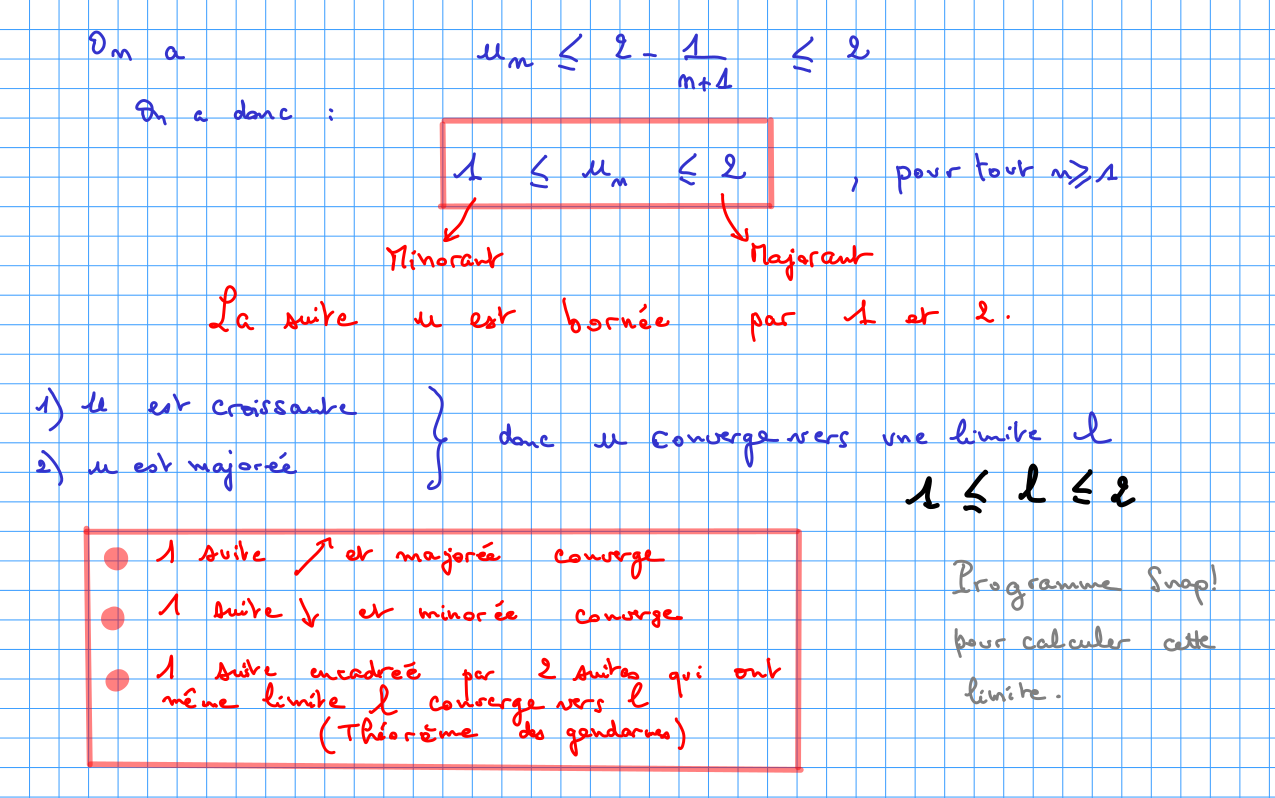 On a u_n ≤ 2 - 1/(n+1) ≤ 2
On a donc :
1 ≤ u_n ≤ 2 , pour tout n ≥ 1
Minorant Majorant
La suite u est bornée par 1 et 2.
1) u est croissante
2) u est majorée
} donc u converge vers une limite l
1 ≤ l ≤ 2
● 1 suite ↗ et majorée converge
● 1 suite ↓ et minorée converge
● 1 suite encadreé par 2 suites qui ont
même limite l converge vers l
(Théorème des gendarmes)
Programme Snap!
pour calculer cette
limite.